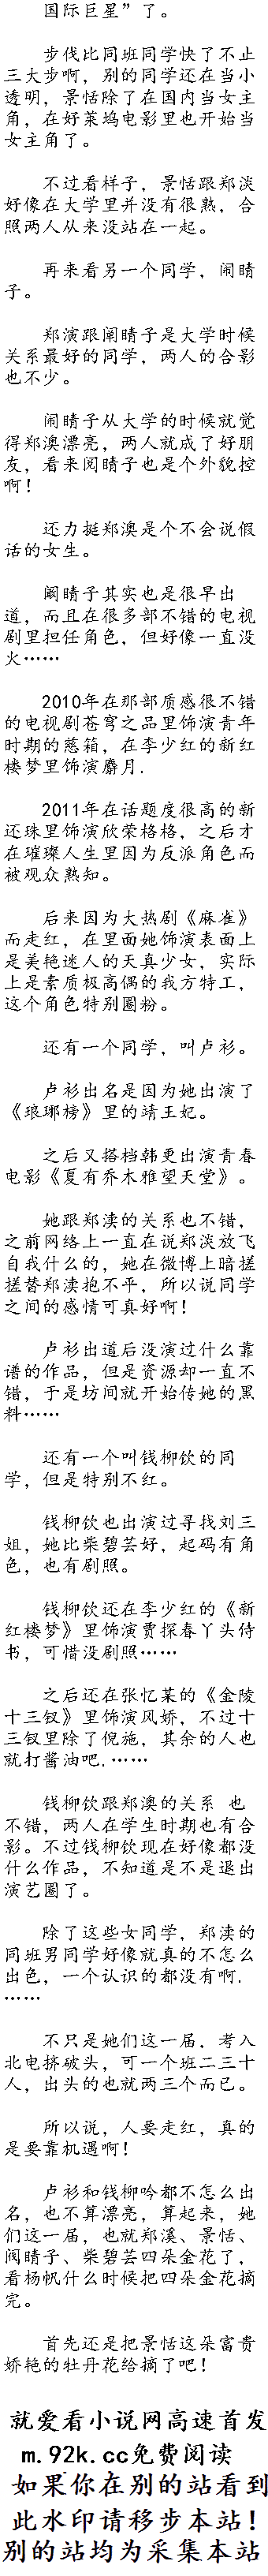 国际巨星”了。
步伐比同班同学快了不止
三大步啊，别的同学还在当小
透明，景恬除了在国内当女主
角，在好莱坞电影里也开始当
女主角了。
不过看样子，景恬跟郑淡
好像在大学里并没有很熟，合
照两人从来没站在一起。
再来看另一个同学，闹晴
子。
郑演跟阐晴子是大学时候
关系最好的同学，两人的合影
也不少。
闹晴子从大学的时候就觉
得郑澳漂亮，两人就成了好朋
友，看来阅晴子也是个外貌控
啊！
还力挺郑澳是个不会说假
话的女生。
阚晴子其实也是很早出
道，而且在很多部不错的电视
剧里担任角色，但好像一直没
火……
2010年在那部质感很不错
的电视剧苍穹之品里饰演青年
时期的慈箱，在李少红的新红
楼梦里饰演麝月.
2011年在话题度很高的新
还珠里饰演欣荣格格，之后才
在璀璨人生里因为反派角色而
被观众熟知。
后来因为大热剧《麻雀》
而走红，在里面她饰演表面上
是美艳迷人的天真少女，实际
上是素质极高偶的我方特工，
这个角色特别圈粉。
还有一个同学，叫卢衫。
卢衫出名是因为她出演了
《琅琊榜》里的靖王妃。
之后又搭档韩更出演青春
电影《夏有乔木雅望天堂》。
她跟郑渎的关系也不错，
之前网络上一直在说郑淡放飞
自我什么的，她在微博上暗搓
搓替郑渎抱不平，所以说同学
之间的感情可真好啊！
卢衫出道后没演过什么靠
谱的作品，但是资源却一直不
错，于是坊间就开始传她的黑
料……
还有一个叫钱柳饮的同
学，但是特别不红。
钱柳饮也出演过寻找刘三
姐，她比柴碧芸好，起码有角
色，也有剧照。
钱柳饮还在李少红的《新
红楼梦》里饰演贾探春丫头侍
书，可惜没剧照……
之后还在张忆某的《金陵
十三钗》里饰演风娇，不过十
三钗里除了倪施，其余的人也
就打酱油吧.……
钱柳饮跟郑澳的关系 也
不错，两人在学生时期也有合
影。不过钱柳饮现在好像都没
什么作品，不知道是不是退出
演艺圈了。
除了这些女同学，郑渎的
同班男同学好像就真的不怎么
出色，一个认识的都没有啊.
……
不只是她们这一届，考入
北电挤破头，可一个班二三十
人，出头的也就两三个而已。
所以说，人要走红，真的
是要靠机遇啊！
卢衫和钱柳吟都不怎么出
名，也不算漂亮，算起来，她
们这一届，也就郑溪、景恬、
阀晴子、柴碧芸四朵金花了，
看杨帆什么时候把四朵金花摘
完。
首先还是把景恬这朵富贵
娇艳的牡丹花给摘了吧！
就爱看小说网高速首发
m.92k.cc免费阅读
如果你在别的站看到
此水印请移步本站！
别的站均为采集本站